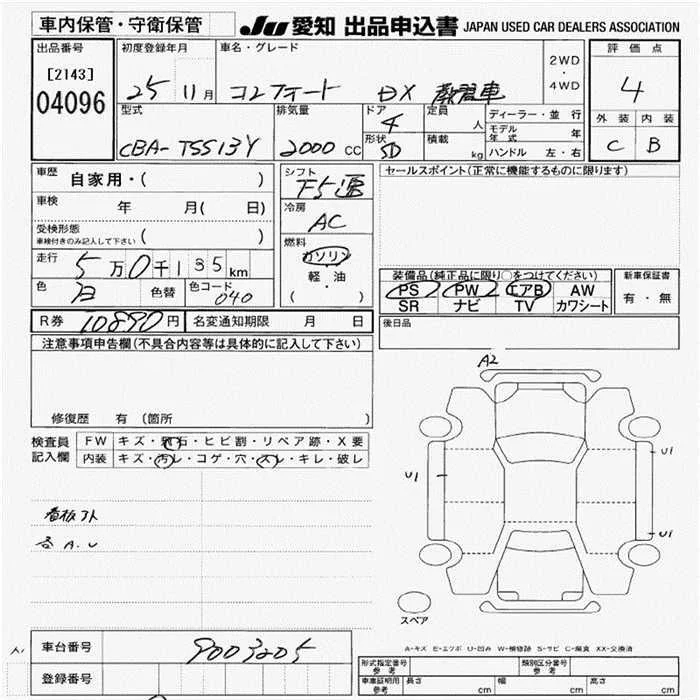 車内保管・守衛保管
JU 愛知 出品申込書 JAPAN USED CAR DEALERS ASSOCIATION
出品番号
[2143]
04096
初度登録年月
25 11月
車名・グレード
コンフォート DX 教習車
2WD
・
4WD
評価点
4
外装 内装
C B
型式
CBA-TSS13Y
排気量
2000 CC
ドア
4
形状
SD
定員
人
積載
kg
ディーラー・並行
モデル年式 年
ハンドル 左・右
車歴
自家用・( )
車検
年 月( 日)
受検形態
車検付きのみ記入して下さい ( )
走行
5万0千135km
色
白
色替
色コード
040
シフト
F5速
冷房
AC
燃料
ガソリン
・
軽・油
( )
セールスポイント(正常に機能するものに限ります)
装備品(純正品に限り○をつけてください)
PS PW エアB AW
SR ナビ TV カワシート
新車保証書
有・無
R券 10890円
名変通知期限 月 日
後日品
注意事項申告欄(不具合内容等は具体的に記入して下さい)
修復歴 有 (箇所 )
検査員
記入欄
FW キズ・飛石・ヒビ割・リペア跡・X要
内装 キズ・汚レ・コゲ・穴・スレ・キレ・破レ
看板アト
各A.U
A2
U1
U1
U1
スペア
A-キズ E-エクボ U-凹み W-補修跡 S-サビ C-腐食 XX-交換済
車台番号
9003205
登録番号
形式指定番号
参考
類別区分番号
参考
車庫証明用
参考
長さ cm
幅 cm
高さ cm